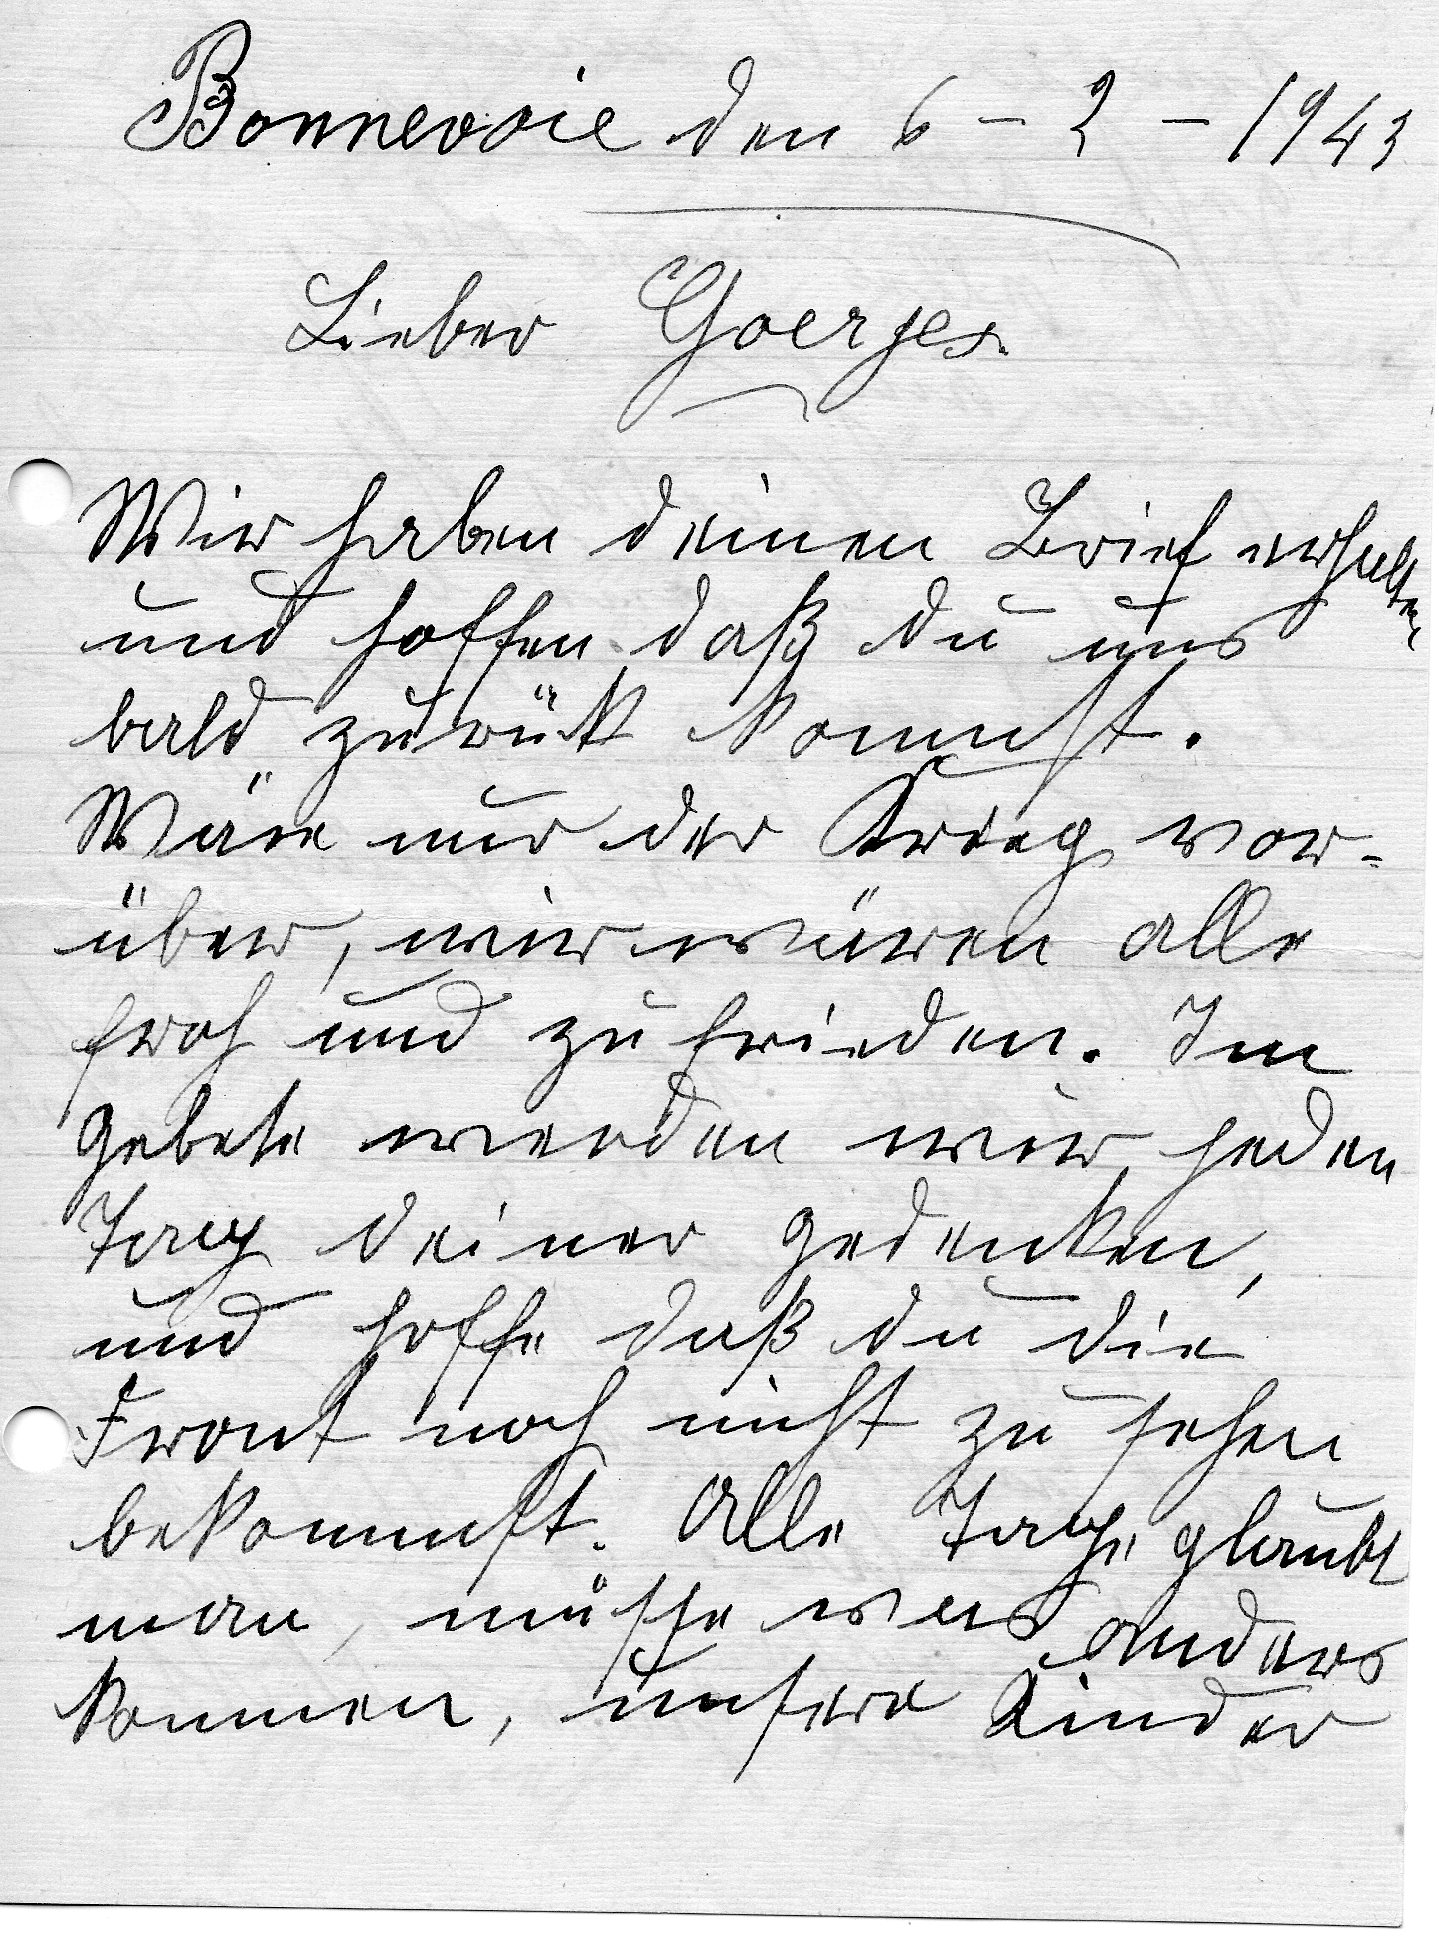 Bonnevoie den 6 – 2 – 1943
Lieber Goerges.
Wir haben deinen Brief erhalten,
und hoffen daß du uns
bald zurük kommst.
Wäre nur der Krieg vor-
über, wir wären alle
froh und zufrieden. Im
Gebete werden wir jeden
Tag deiner gedenken,
und hoffe daß du die
Front noch nicht zu sehen
bekommst. Alle Tage glaubt
man, müsse was anders
kommen, unsere Kinder